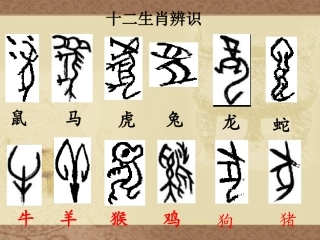 十二生肖辨识
鼠 马 虎 兔 龙 蛇
牛 羊 猴 鸡 狗 猪